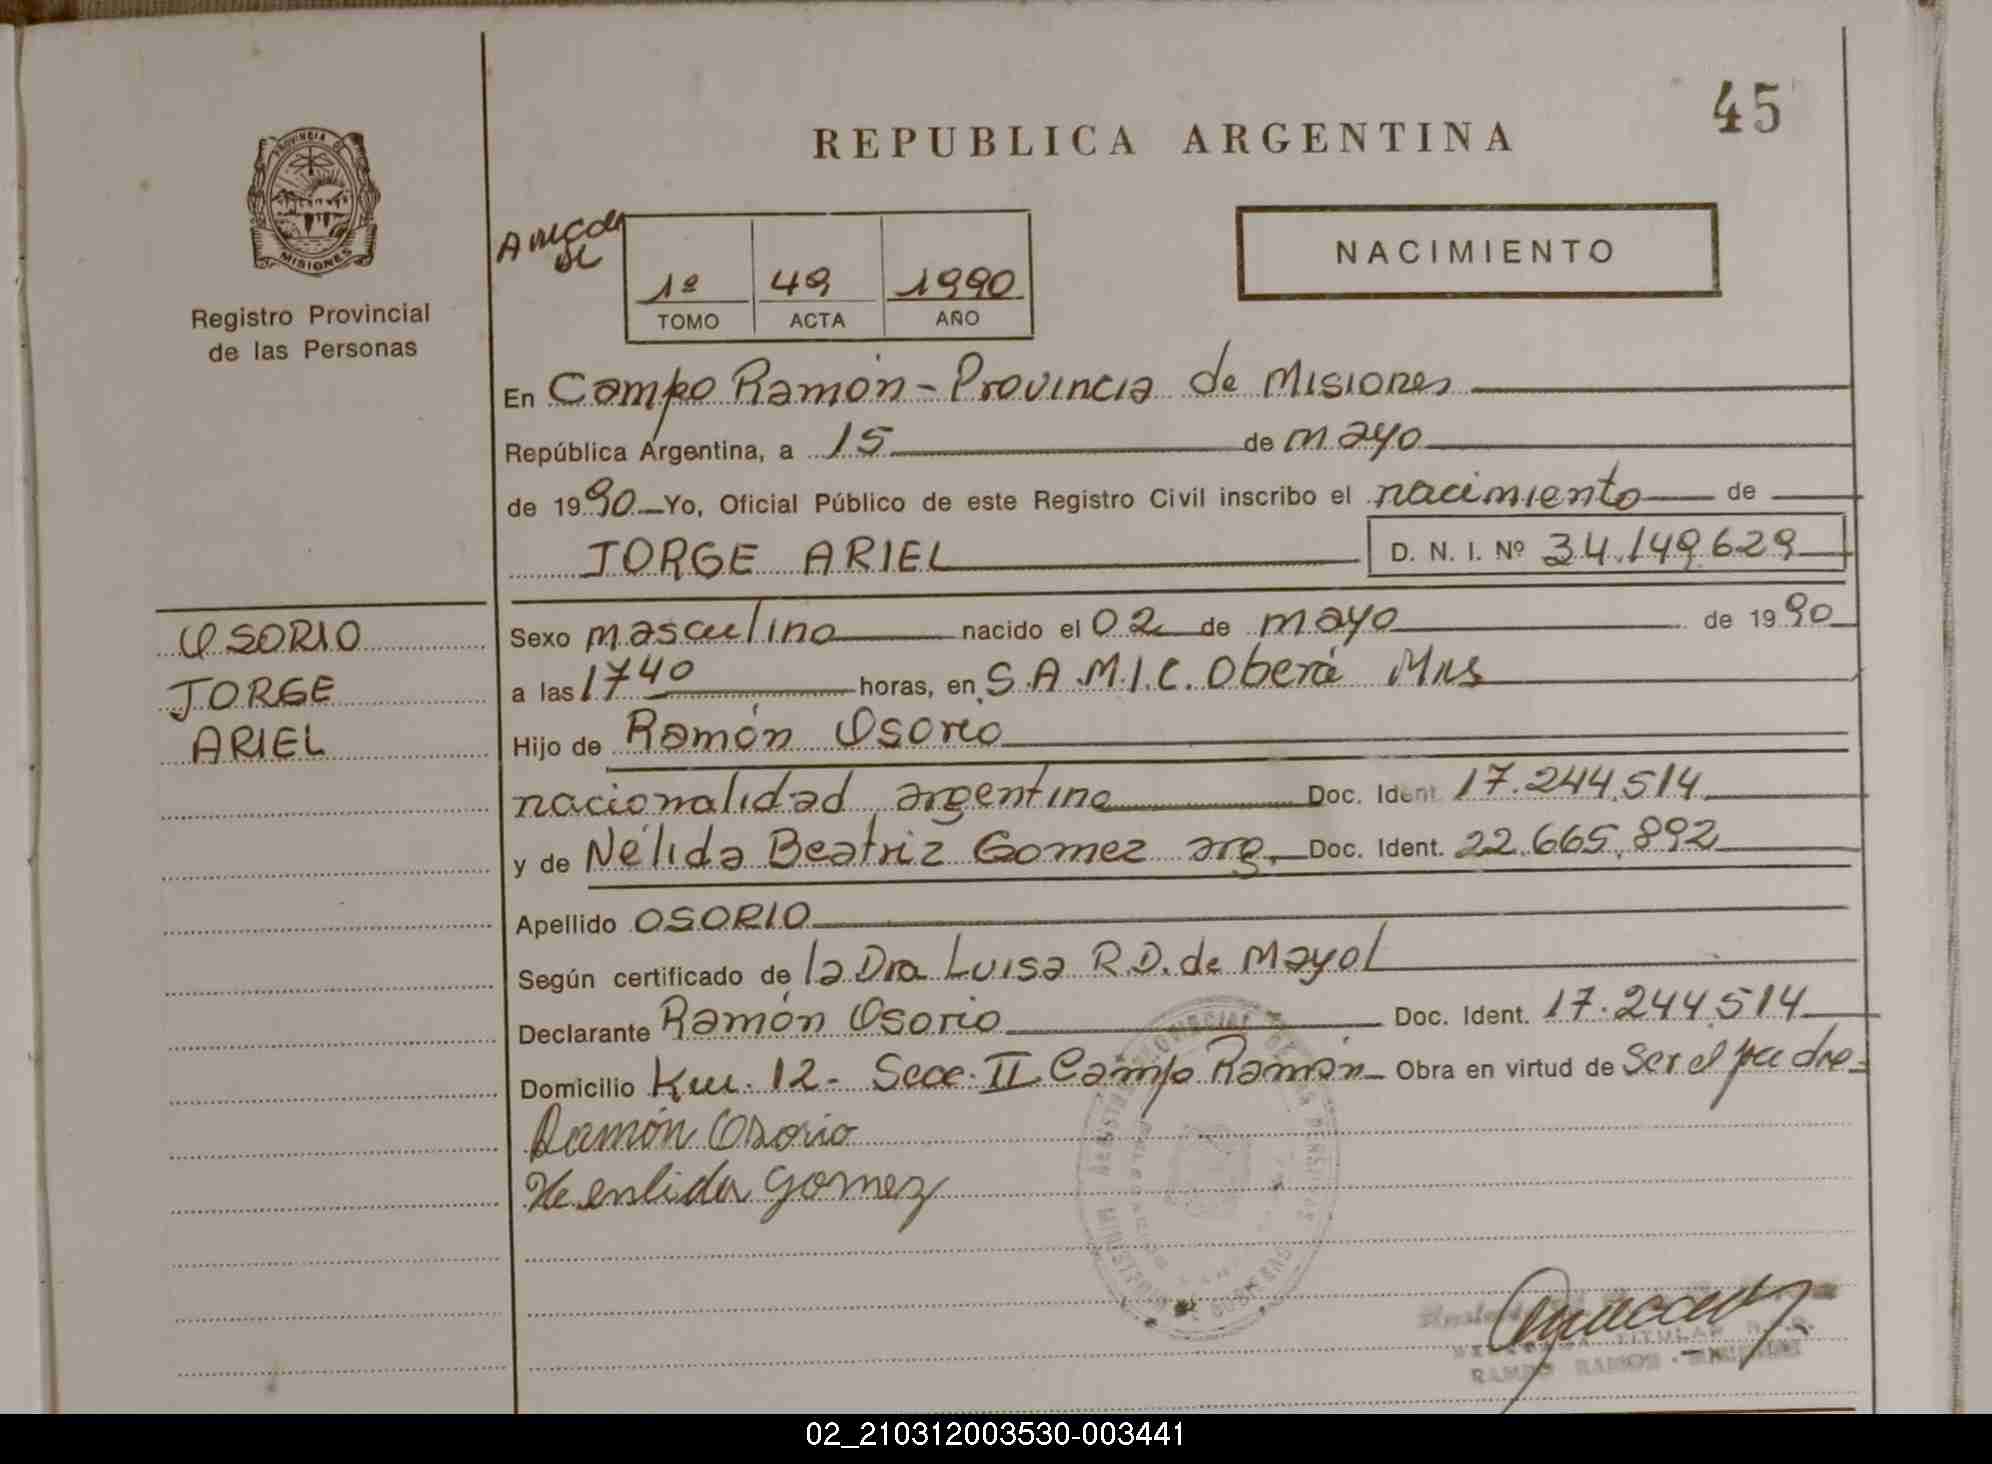 45
REPUBLICA ARGENTINA
PROVINCIA DE
MISIONES
Registro Provincial
de las Personas
NACIMIENTO
1º 49 1990
TOMO ACTA AÑO
En Campo Ramón - Provincia de Misiones
República Argentina, a 15 de mayo
de 1990 Yo, Oficial Público de este Registro Civil inscribo el nacimiento de
JORGE ARIEL D. N. I. Nº 34.149.629
OSORIO
JORGE
ARIEL
Sexo masculino nacido el 02 de mayo de 1990
a las 1740 horas, en S.A.M.I.C. Oberá Mns
Hijo de Ramón Osorio
nacionalidad argentina Doc. Ident. 17.244.514
y de Nélida Beatriz Gomez arg. Doc. Ident. 22.665.892
Apellido OSORIO
Según certificado de la Dra Luisa R.D. de Mayol
Declarante Ramón Osorio Doc. Ident. 17.244.514
Domicilio Km. 12 - Secc. II Campo Ramón Obra en virtud de ser el padre
Ramón Osorio
Gomez
TITULAR
RAMON
02_210312003530-003441